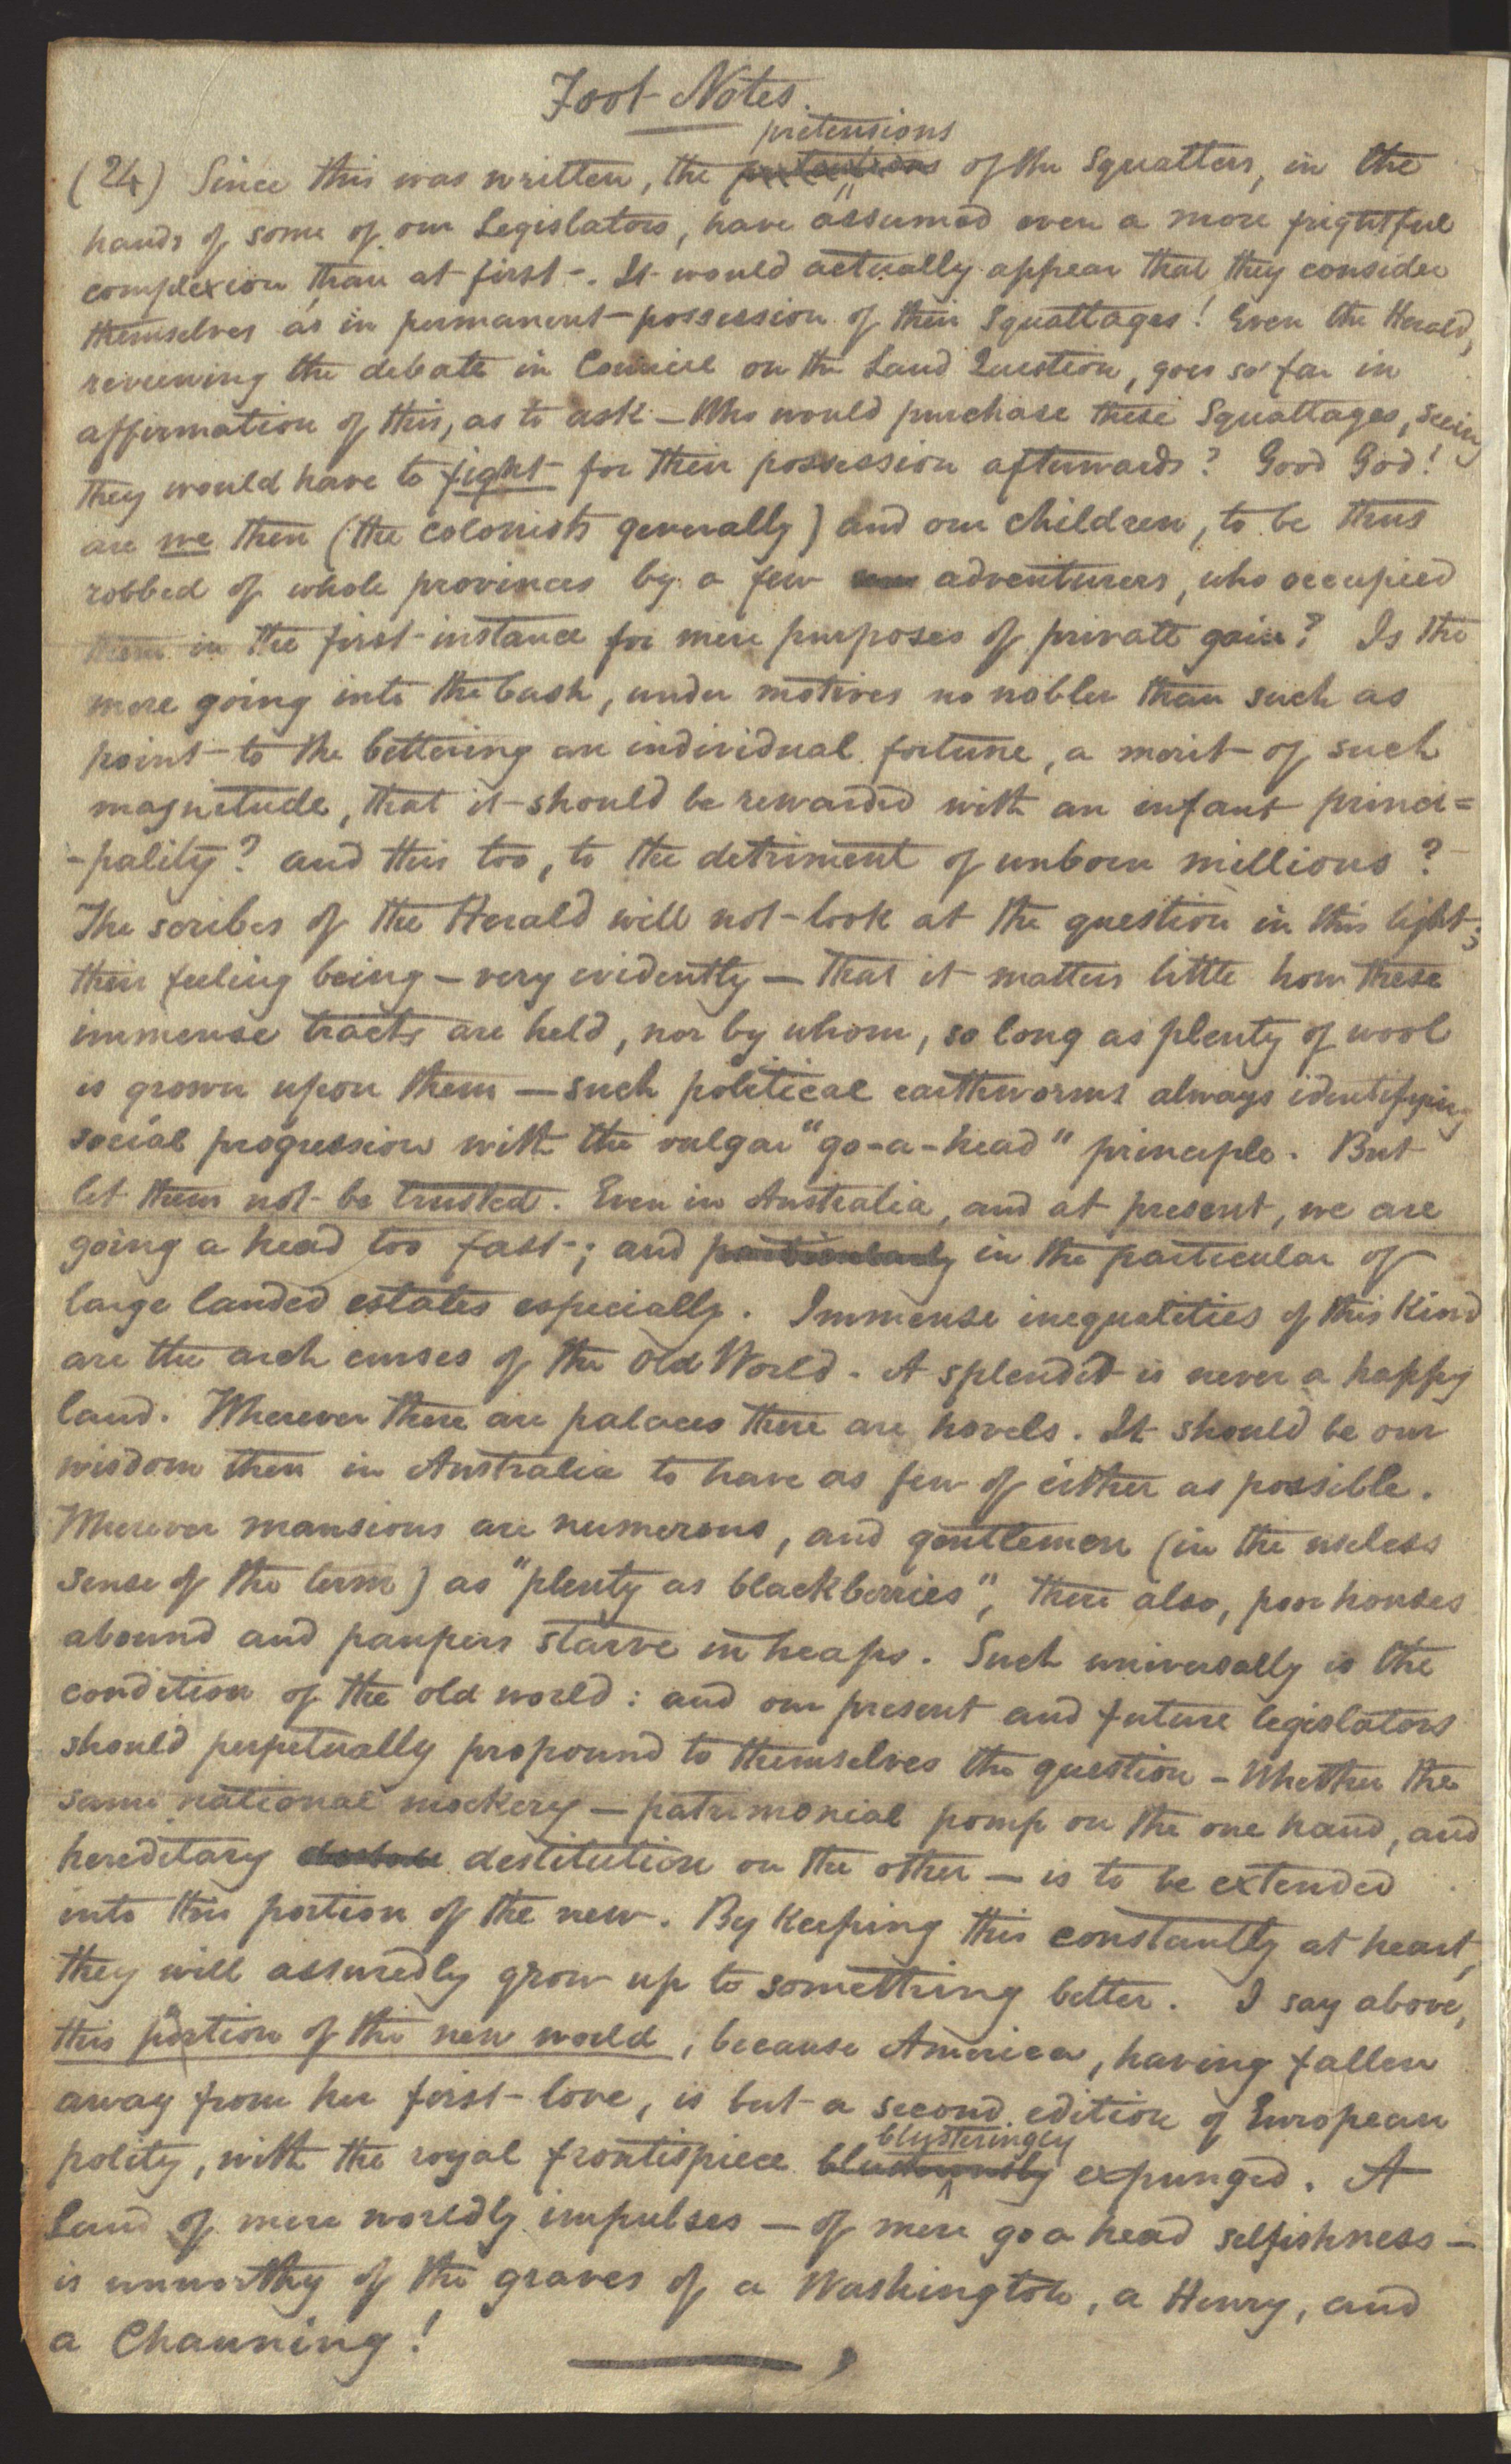 Foot Notes.
pretensions
(24) Since this was written, the of the Squatters, in the
hands of some of our Legislators, have assumed even a more frightful
complexion than at first. It would actually appear that they consider
themselves as in permanent possession of their Squattages! Even the Herald,
reviewing the debate in Council on the Land Question, goes so far in
affirmation of this, as to ask – Who would purchase these Squattages, seeing
they would have to fight for their possession afterwards? Good God!
are we then (the colonists generally) and our children, to be thus
robbed of whole provinces by a few adventurers, who occupied
them in the first instance for mere purposes of private gain? Is the
mere going into the bush, under motives no nobler than such as
point to the bettering an individual fortune, a merit of such
magnitude, that it should be rewarded with an infant princi=
-pality? and this too, to the detriment of unborn millions?
The scribes of the Herald will not look at the question in this light;
their feeling being – very evidently – that it matters little how these
immense tracts are held, nor by whom, so long as plenty of wool
is grown upon them — such political earthworms always identifying
social progression with the vulgar "go-a-head" principle. But
let them not be trusted. Even in Australia, and at present, we are
going a head too fast; and particularly in the particular of
large landed estates especially. Immense inequalities of this Kind
are the arch curses of the Old World. A splendid is never a happy
land. Wherever there are palaces there are hovels. It should be our
wisdom then in Australia to have as few of either as possible.
Wherever mansions are numerous, and gentlemen (in the useless
sense of the term) as "plenty as blackberries", there also, poor houses
abound and paupers starve in heaps. Such universally is the
condition of the old world: and our present and future legislators
should perpetually propound to themselves the question – Whether the
same national mockery — patrimonial pomp on the one hand, and
hereditary destitution on the other — is to be extended
into this portion of the new. By Keeping this constantly at heart,
they will assuredly grow up to something better. I say above,
this portion of the new world, because America, having fallen
away from her first love, is but a second edition of European
blusteringly
polity, with the royal frontispiece expunged. A
Land of mere worldly impulses — of mere go a head selfishness —
is unworthy of the graves of a Washington, a Henry, and
a Channing!